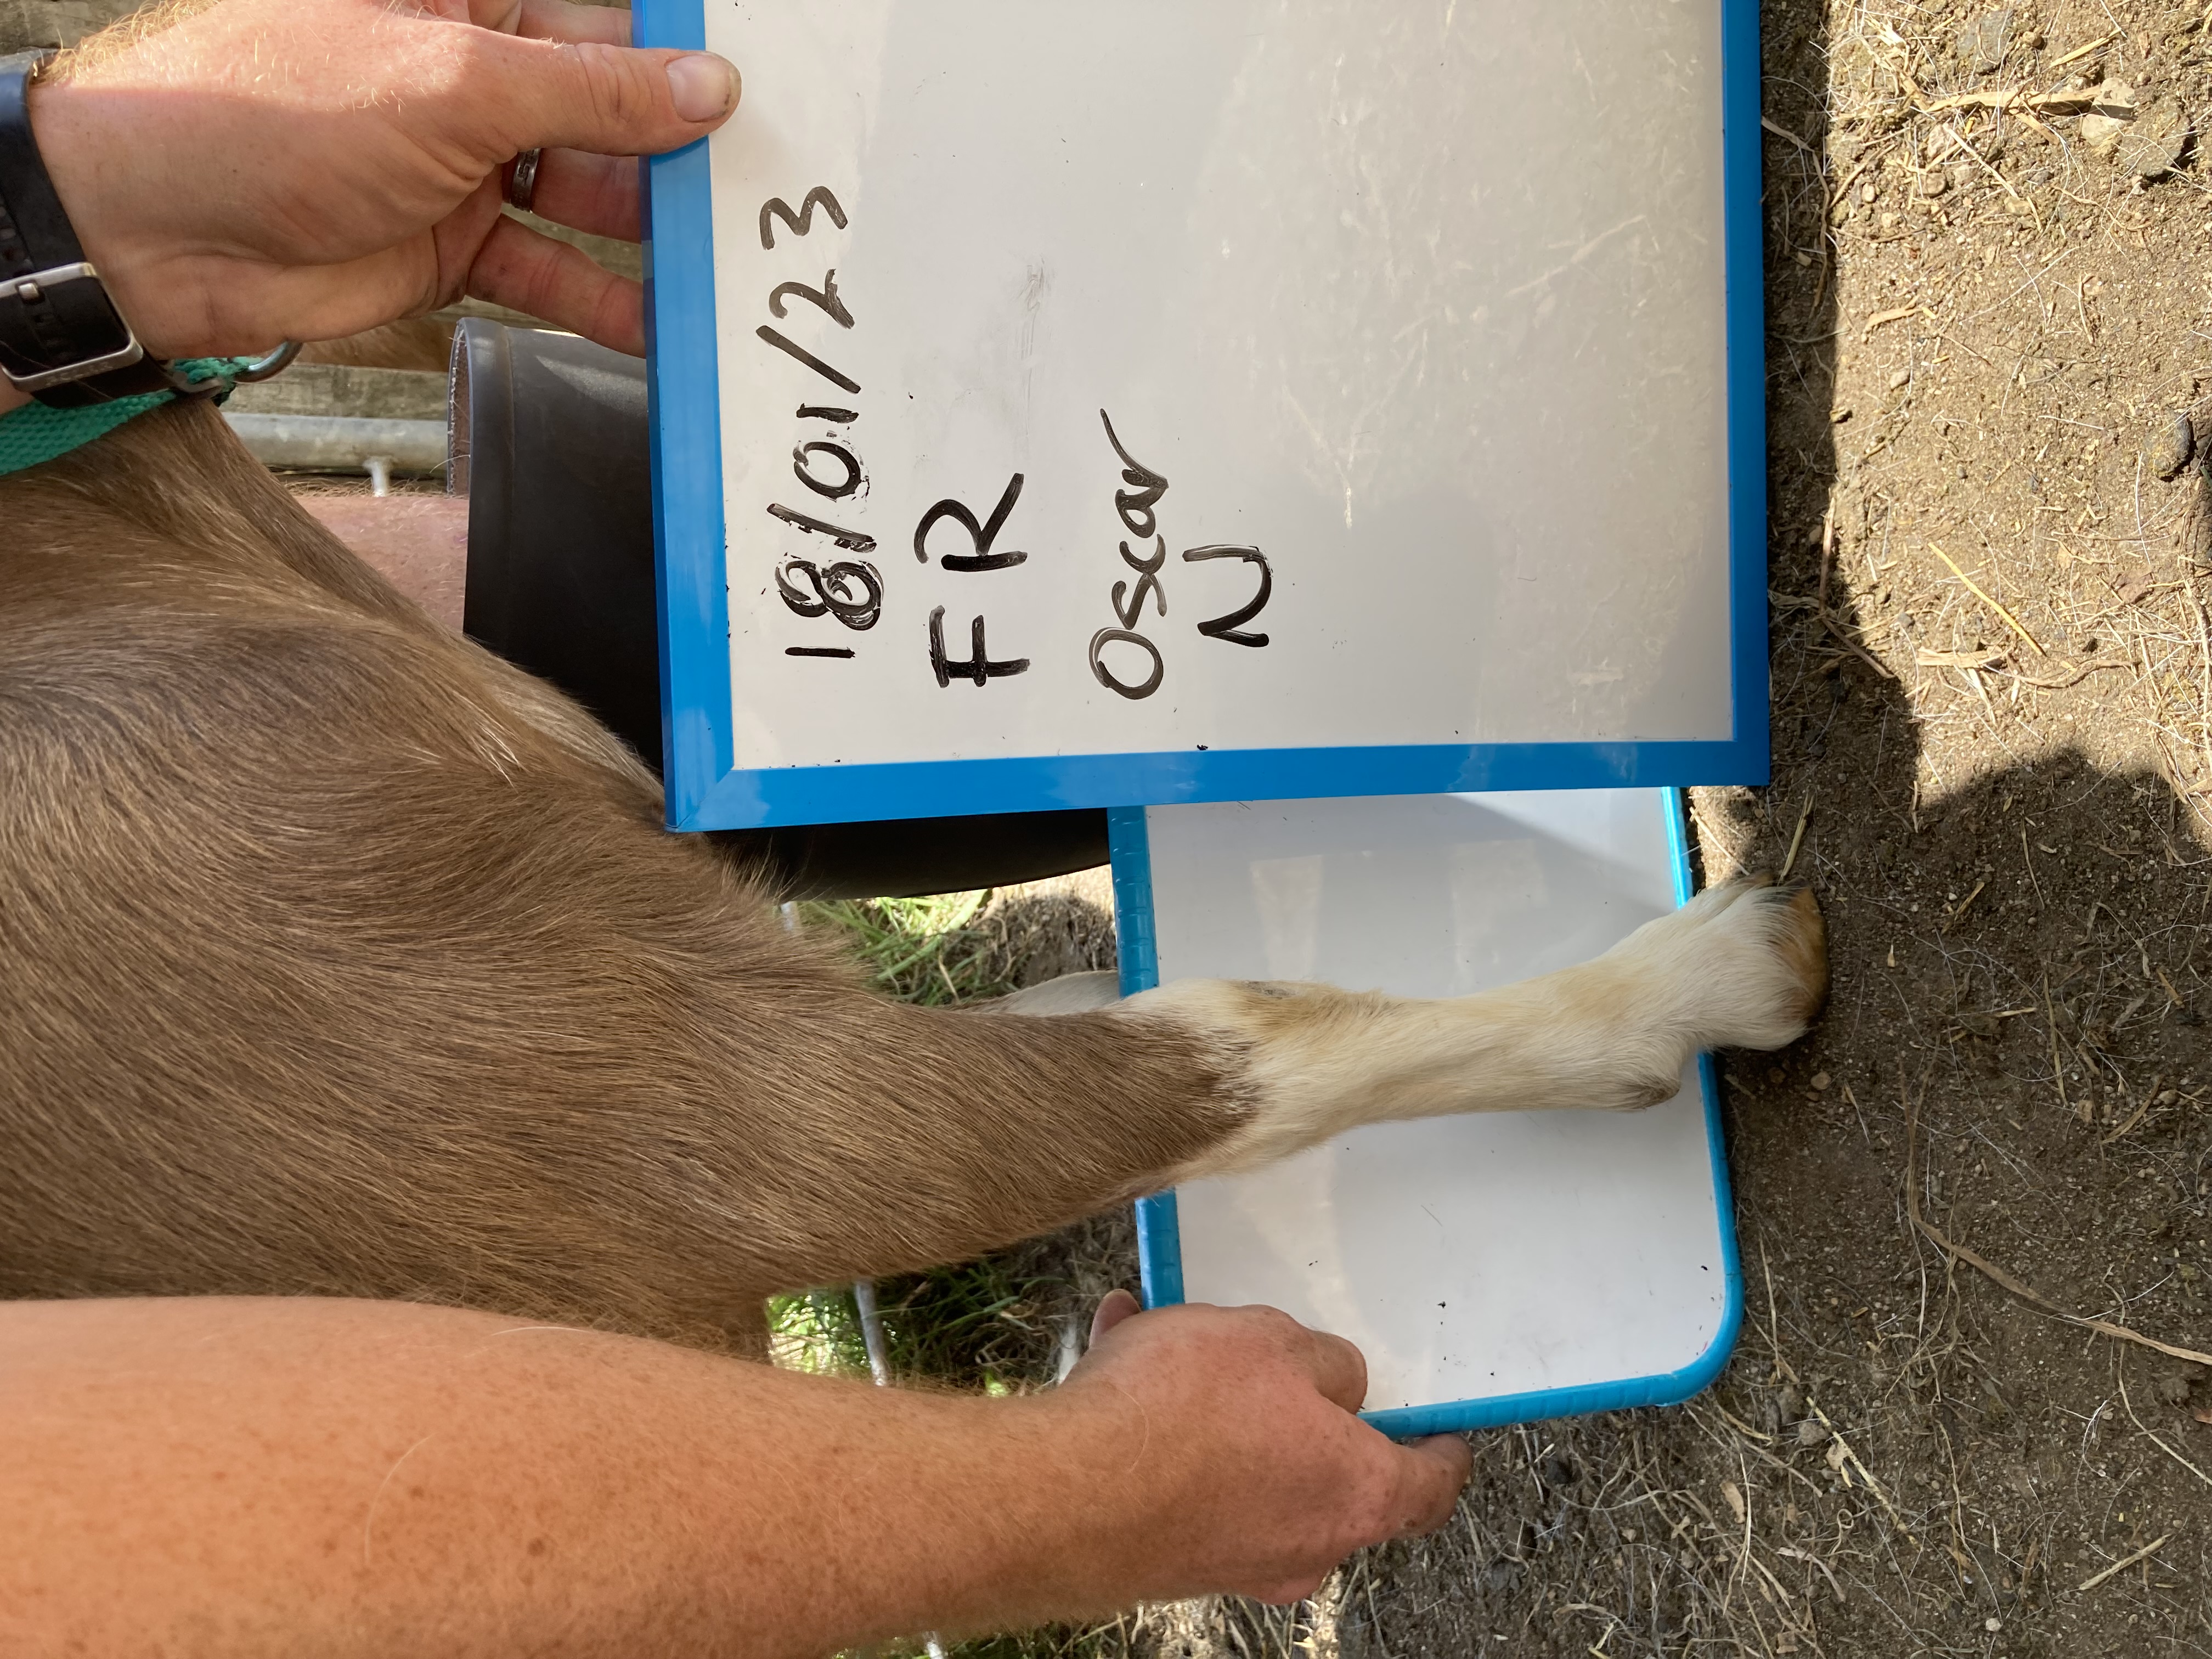 18/01/23
FR
Oscar
N